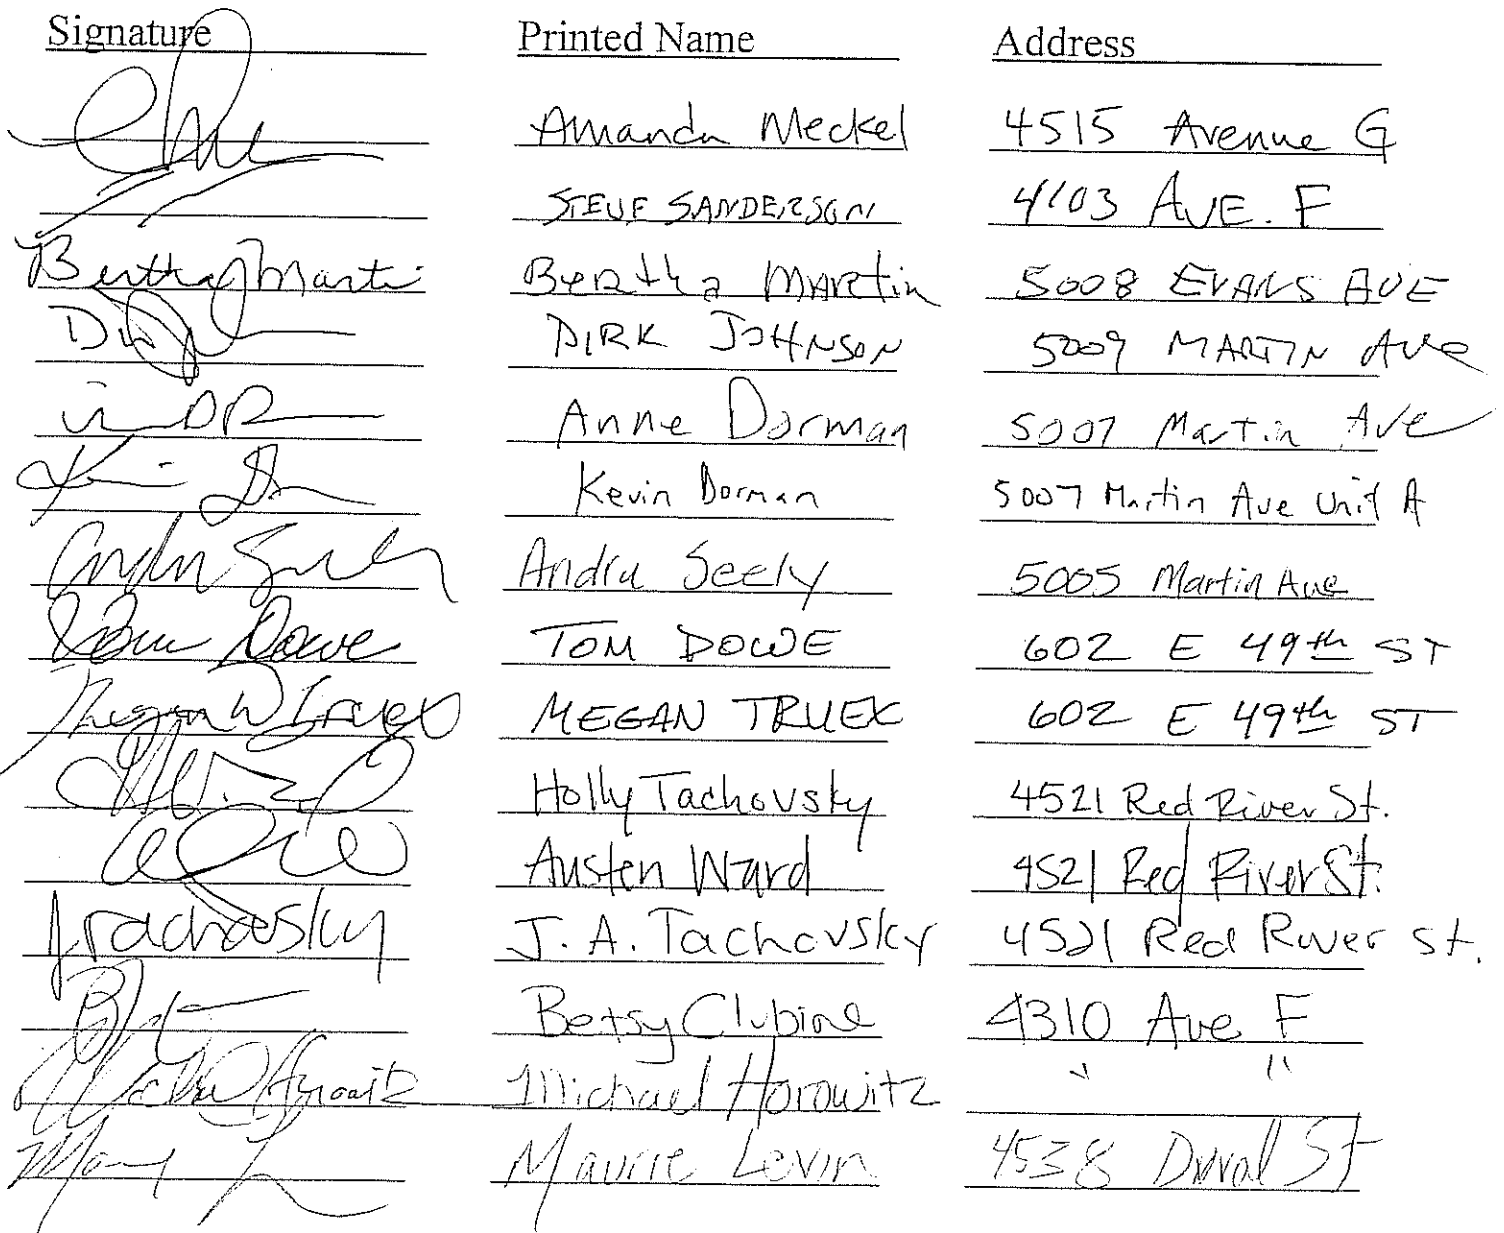 Signature Printed Name Address
Amanda Meckel 4515 Avenue G
STEVE SANDERSON 4103 AVE. F
Bertha Martin Bertha Martin 5008 EVANS AVE
DIRK JOHNSON 5009 MARTIN Ave
Anne Dorman 5007 Martin Ave
Kevin Dorman 5007 Martin Ave Unit A
Seely 5005 Martin Ave
Tom Dowe TOM DOWE 602 E 49th ST
Megan W Truex MEGAN TRUEX 602 E 49th ST
Holly Tachovsky 4521 Red River St.
Austen Ward 4521 Red River St.
JTachovsky J. A. Tachovsky 4521 Red River St.
Betsy Clubine 4310 Ave F
Michael Horowitz Michael Horowitz " "
Maurie Levin 4538 Duval St